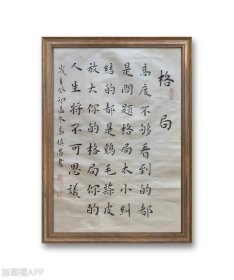 格局
高度不够看到的都
是问题格局太小纠
结的都是鸡毛蒜皮
放大你的格局你的
人生将不可思议
岁在癸卯孟冬
书
加画框APP